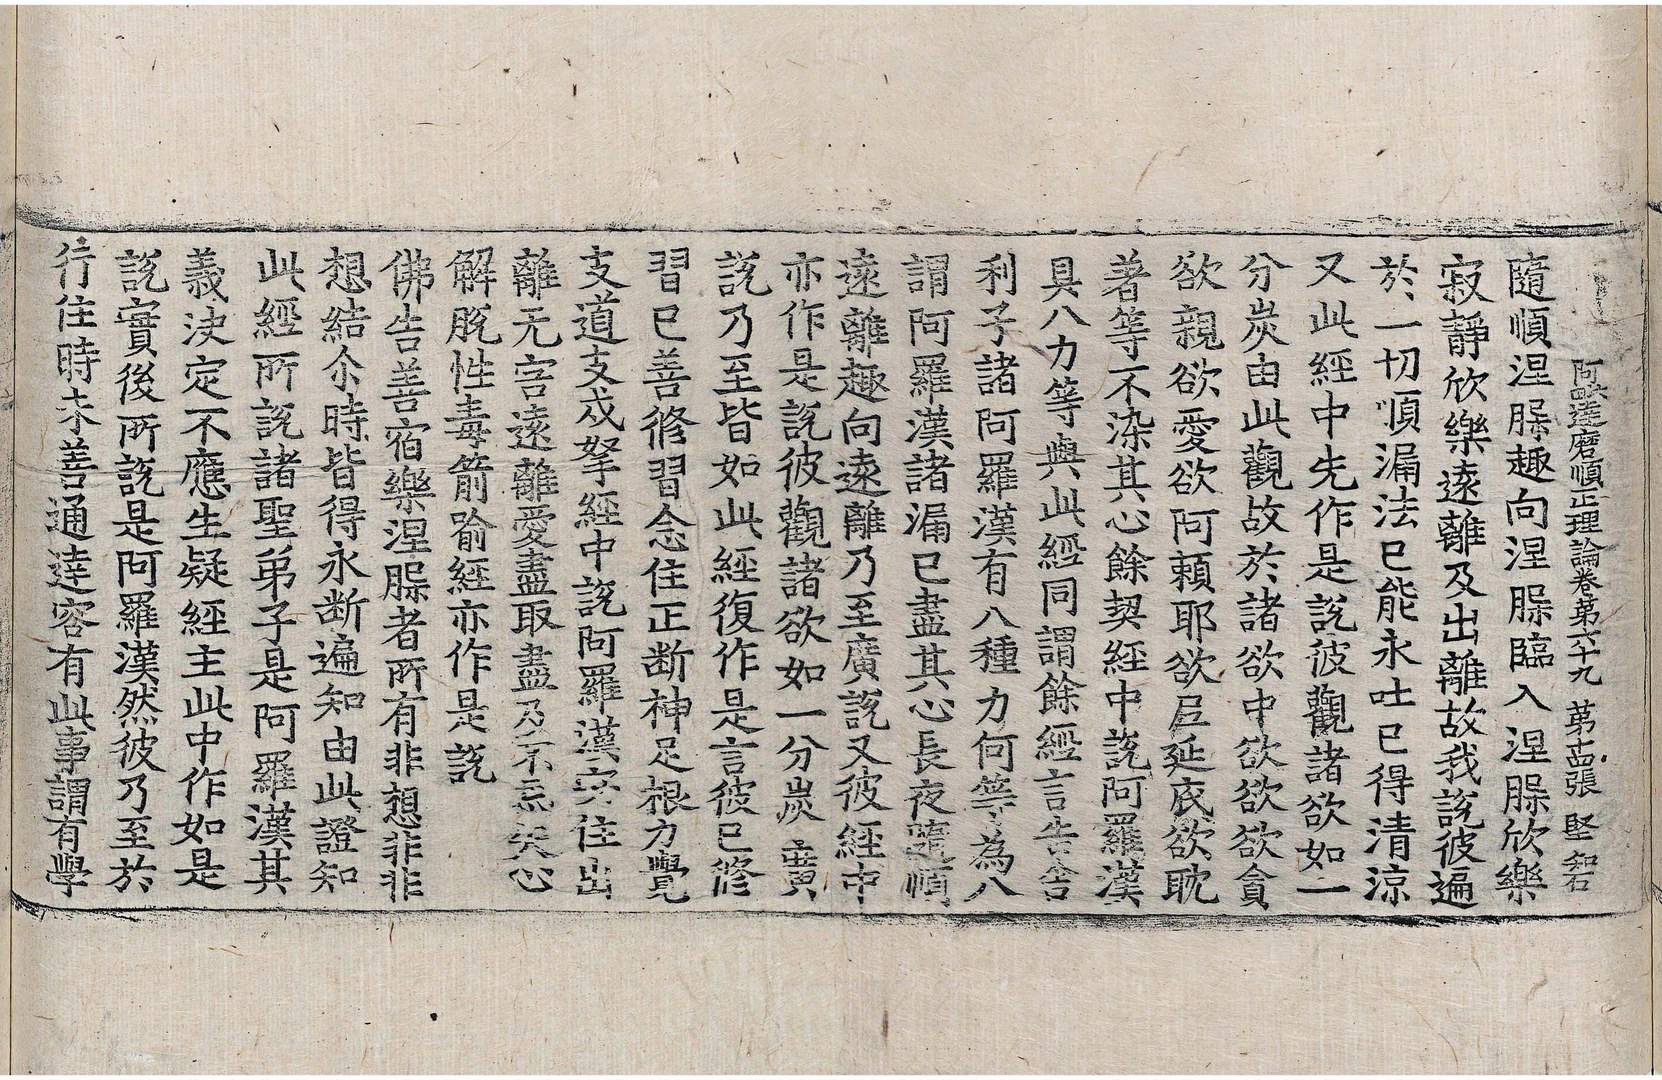 阿毗達磨順正理論卷第六十九 第十四張 堅 知石
隨順涅槃趣向涅槃臨入涅槃欣樂
寂靜欣樂遠離及出離故我說彼遍
於一切順漏法已能永吐已得清涼
又此經中先作是說彼觀諸欲如一
分炭由此觀故於諸欲中欲欲欲貪
欲親欲愛欲阿賴耶欲尼延底欲耽
著等不染其心餘契經中說阿羅漢
具八力等與此經同謂餘經言告舍
利子諸阿羅漢有八種力何等為八
謂阿羅漢諸漏已盡其心長夜隨順
遠離趣向遠離乃至廣說又彼經中
亦作是說彼觀諸欲如一分炭廣
說乃至皆如此經復作是言彼已修
習已善修習念住正断神足根力覺
支道支戍拏經中說阿羅漢安住出
離无害遠離愛盡取盡及不忘失心
解脫性毒箭喻經亦作是說
佛告善宿樂涅槃者所有非想非非
想結尒時皆得永断遍知由此證知
此經所說諸聖弟子是阿羅漢其
義決定不應生疑經主此中作如是
說實後所說是阿羅漢然彼乃至於
行住時未善通達容有此事謂有學